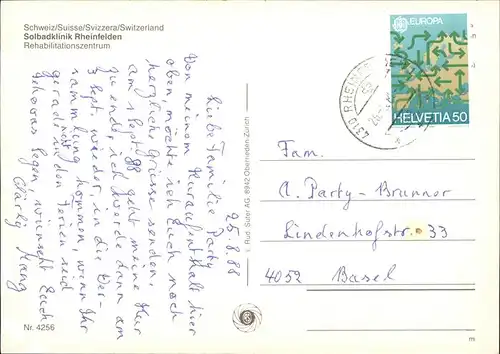 Schweiz/Suisse/Svizzera/Switzerland
Solbadklinik Rheinfelden
Rehabilitationszentrum
25.8.88
Liebe Familie Party
Von meinem Kuraufenthalt hier
oben möchte ich Euch noch
herzliche Grüsse senden.
am 1 Sept 88 geht meine Kur
zu ende, ich werde dann am
3 Sept. wieder in die Ver-
sammlung kommen, wenn Ihr
nicht
gerade in den Ferien seid
Jehovas Segen, wünscht Euch
Nr. 4256
i. Rud. Suter AG, 8942 Oberrieden-Zürich
EUROPA
HELVETIA 50
4310 RHEINF
Fam.
A. Party-Brunner
Lindenhofstr. 33
4052 Basel